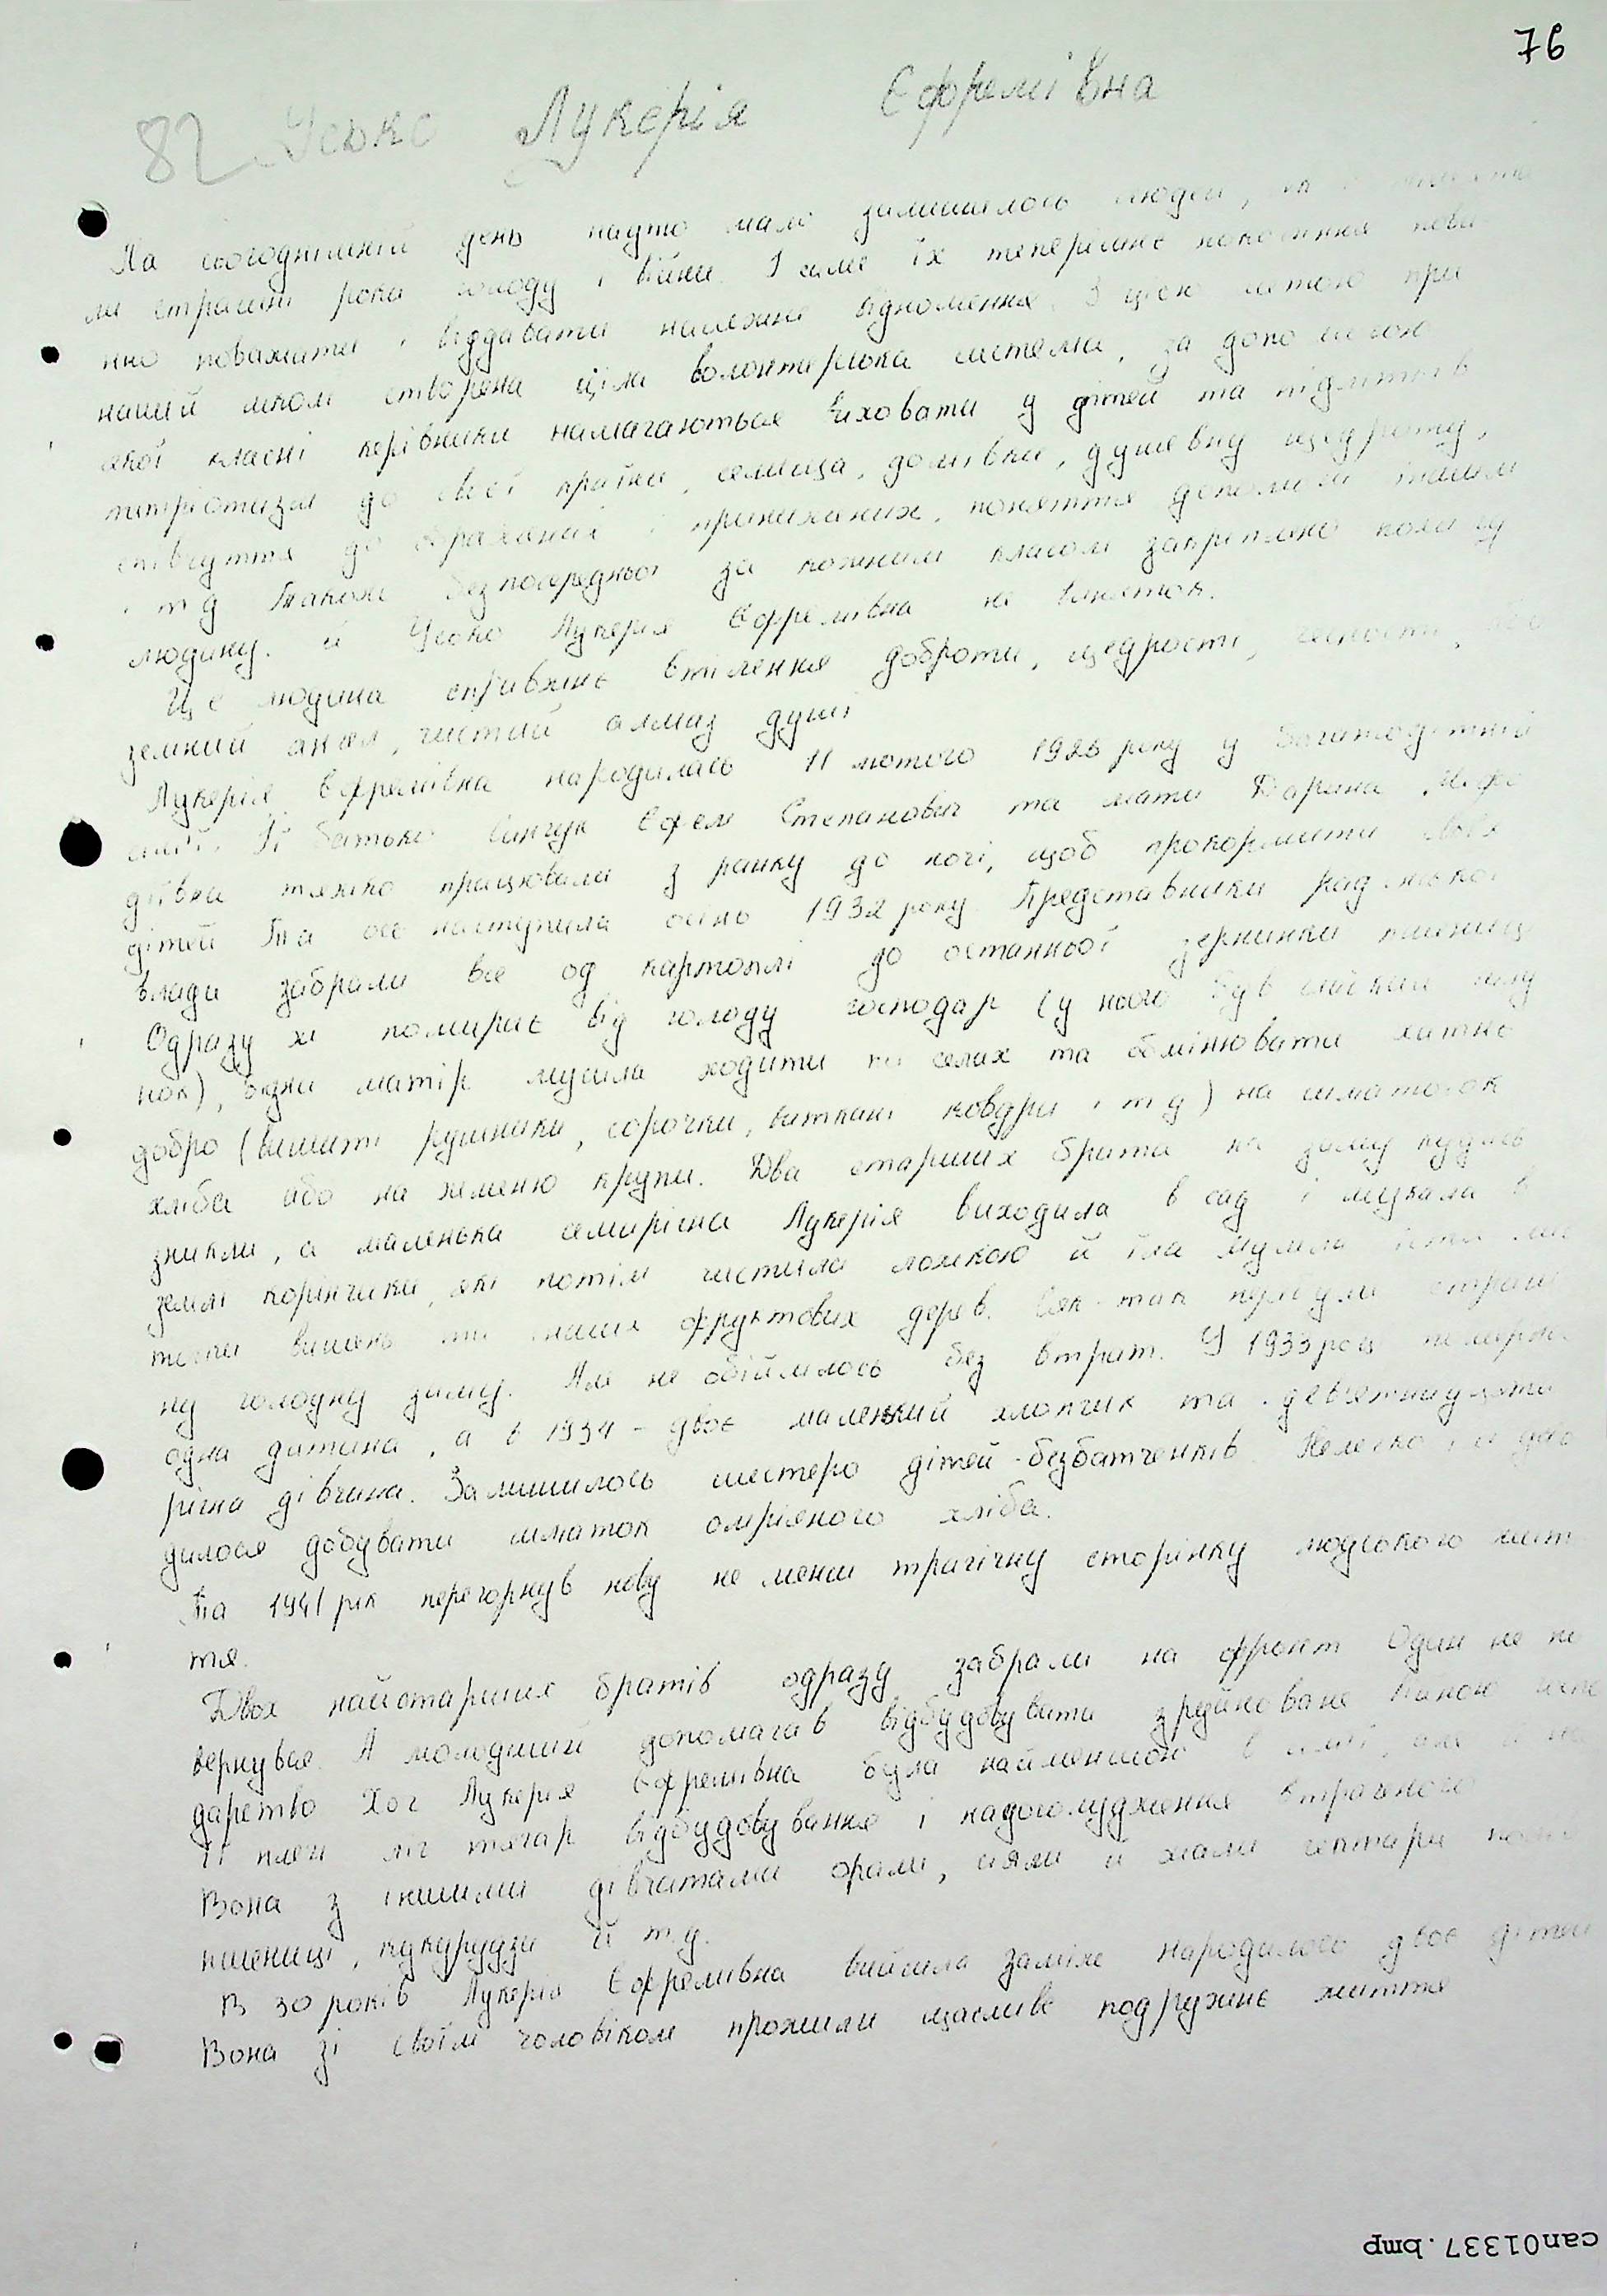 76
82. Усько Лукерія Єфремівна
На сьогоднішній день надто мало залишилось людей,
ли страшні роки голоду і війни. І саме їх теперішнє покоління пови
нно поважати і віддавати належне відношення. З цією метою при
нашій школі створена ціла волонтерська система, за допомогою
якої класні керівники намагаються виховати у дітей та підлітків
патріотизм до своєї країни, селища, домівки, душевну щедроту,
співчуття до ображених і принижених, поняття допомоги іншим
і т д Також безпосередньо за кожним класом закріплено кожну
людину. й Усько Лукерія Єфремівна не виняток.
Це людина справжнє втілення доброти, щедрости, чесності,
земний ангел, чистий алмаз душі
Лукерія Єфремівна народилась 11 лютого 1926 року у багатодітній
сім'ї. Її батько Єфрем Степанович та мати Дарина
дівна тяжко працювали з ранку до ночі, щоб прокормити своїх
дітей Та ось наступила осінь 1932 року. Представники радянської
влади забрали все од картоплі до останньої зернинки пшениці
Одразу ж помирає від голоду господар (у нього був слабкий шлу
нок), бідна матір мусила ходити по селах та обмінювати хатнє
добро (вишиті рушники, сорочки, виткані ковдри і т д) на шматочок
хліба або на жменю крупи. Два старших брата на зиму кудись
зникли, а маленька семирічна Лукерія виходила в сад і шукала в
землі корінчики, які потім чистила ложкою й їла мусила їсти
вишень та інших фруктових дерев. Сяк-так пережили страш
ну голодну зиму. Але не обійшлось без втрат. У 1933 році померла
одна дитина, а в 1934 - двоє маленький хлопчик та дев'ятнадцяти
річна дівчина. Залишилось шестеро дітей-безбатченків. Нелегко їм дово
дилося добувати шматок омріяного хліба.
Та 1941 рік перегорнув нову не менш трагічну сторінку людського жит
тя.
Двох найстарших братів одразу забрали на фронт Один не по
вернувся. А молодший допомагав відбудовувати зруйноване війною
дарство Хоч Лукерія Єфремівна була найменшою в сім'ї, але й на
її плечі ліг тягар відбудовування і надолуження втраченого
Вона з іншими дівчатами орали, сіяли й жали гектари
пшениці, кукурудзи й т.д.
В 30 років Лукерія Єфремівна вийшла заміж народилось двоє дітей
Вона зі своїм чоловіком прожили щасливе подружнє життя
can01337.bmp